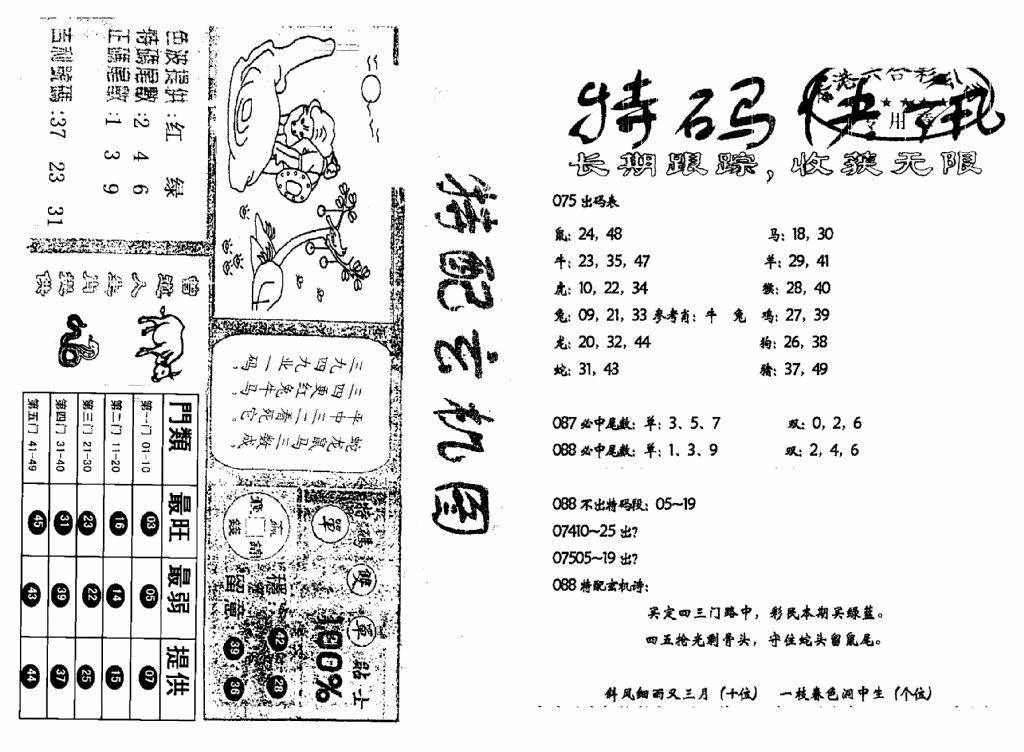 色波提供:红 绿
特碼尾數:2 4 6
正碼尾數:1 3 9
吉利號碼:37 23 31
曾道人生肖提供
三九四九业一码，
三四更红兔牛马。
羊中三二看死它。
蛇龙鼠马三数成，
門類 最旺 最弱 提供
第一门 01-10 03 05 07
第二门 11-20 16 14 15
第三门 21-30 23 22 25
第四门 31-40 31 39 37
第五门 41-49 45 43 44
特碼 單 雙 單 貼士
100%
穩 42 28
留意 39 36
特配玄机图
特码快讯
六合彩
专用章
长期跟踪，收获无限
075出码表
鼠：24，48 马：18，30
牛：23，35，47 羊：29，41
虎：10，22，34 猴：28，40
兔：09，21，33 参考肖：牛 兔 鸡：27，39
龙：20，32，44 狗：26，38
蛇：31，43 猪：37，49
087必中尾数：单：3、5、7 双：0，2，6
088必中尾数：单：1、3、9 双：2，4，6
088不出特码段：05～19
07410～25出？
07505～19出？
088特配玄机诗：
买定四三门路中，彩民本期买绿蓝。
四五抢光剩骨头，守住蛇头留鼠尾。
斜风细雨又三月（十位） 一枝春色洞中生（个位）